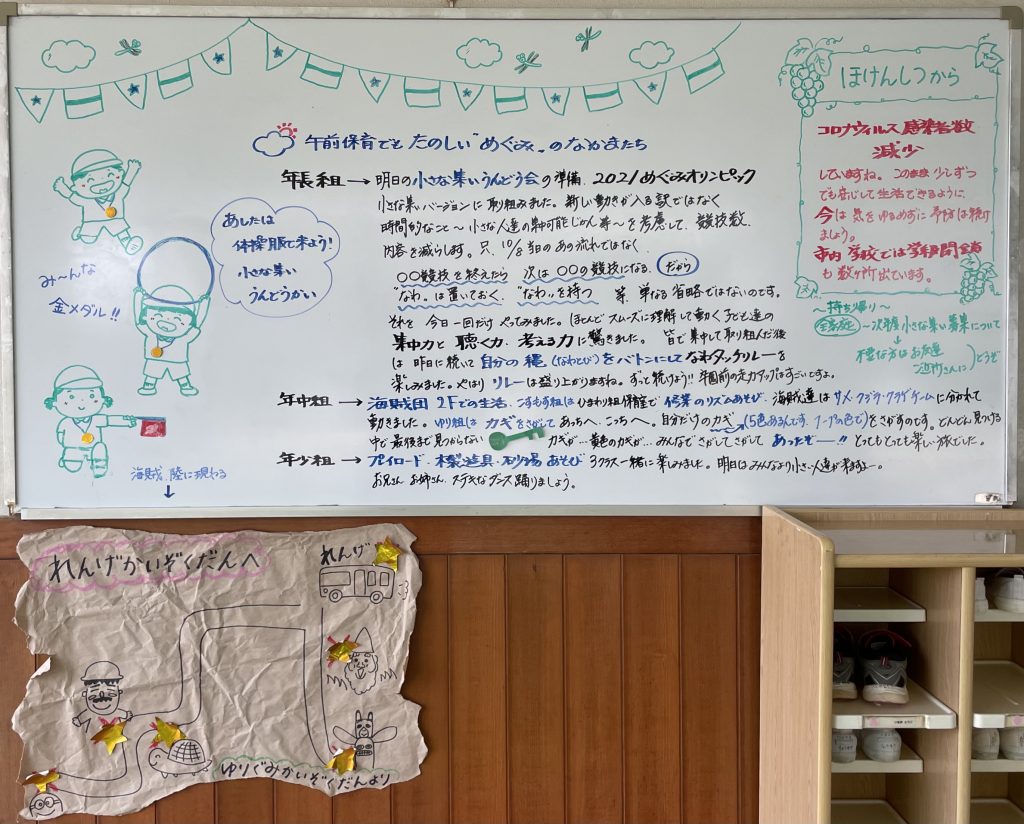 午前保育でも たのしい"めぐみ"のなかまたち
年長組 → 明日の小さな集いうんどう会の準備. 2021めぐみオリンピック
小さな集いバージョンに取り組みました。新しい動きが入る訳ではなく
時間的なこと〜小さな人達の集中可能じかん 〜を考慮して、競技数、
内容を減らします。只、10/8当日のあの流れではなく、
〇〇競技を終えたら 次は〇〇の競技になる. だから
"なわ"は置いておく、"なわ"を持つ 等、単なる省略ではないのです。
それを 今日一回だけ やってみました。ほとんどスムーズに理解して動く子ども達の
集中力と聴く力、考える力に驚きました。 皆で集中して取り組んだ後
は 昨日に続いて自分の縄(なわとび)をバトンにしてなわタッチリレーを
楽しみました。やはり リレーは盛り上がりますね。ずっと続けよう!! 年園前の走力アップはすごいですよ。
年中組 → 海賊団 2Fでの生活、こすもす組はひまわり組保育室で 修業のリズムあそび、海賊達はサメ・クジラ・クラゲゲームに分かれて
動きました。ゆり組は カギをさがして あっちへ、こっちへ。自分だけのカギ (5色あるんです. 1・つの色で)をさがすのです。どんどん見つける
中で最後まで見つからない カギが… 黄色のカギが… みんなでさがしてさがして あったぞーー!! とってもとっても楽しい旅でした。
年少組 → プイロード・木製道具・砂場あそび 3クラス一緒に楽しみました。明日はみんなより小さい人達が来ますよー。
お兄さん お姉さん、ステキなダンス踊りましょう。
あしたは
体操服で来よう!
小さな集い
うんどうかい
み〜んな
金メダル!!
海賊、陸に現わる
↓
ほけんしつから
コロナウィルス感染者数
減少
していますね。このまま少しずつ
でも安心して生活できるように
今は気をゆるめずに予防は続け
ましょう。
市内学校では学級閉鎖
も数ヶ所出ています。
〜持ち帰り〜
〜次年度 小さな集い募集について
↓
様な方はお友達
さんに どうぞ
れんげかいぞくだんへ
れんげ
ゆりぐみかいぞくだんより